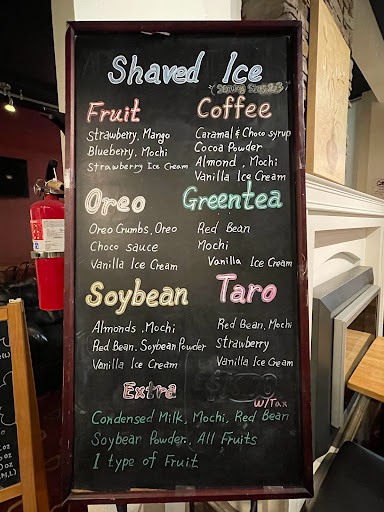 Shaved Ice
Serving Size 2~3
Fruit
Strawberry, Mango
Blueberry, Mochi
Strawberry Ice Cream
Coffee
Caramal & Choco syrup
Cocoa Powder
Almond, Mochi
Vanilla Ice Cream
Oreo
Oreo Cumbs, Oreo
Choco sauce
Vanilla Ice Cream
Greentea
Red Bean
Mochi
Vanilla Ice Cream
Soybean
Almonds, Mochi
Red Bean, Soybean Powder
Vanilla Ice Cream
Taro
Red Bean, Mochi
Strawberry
Vanilla Ice Cream
Extra
w/Tax
Condensed Milk, Mochi, Red Bean
Soybean Powder, All Fruits
1 type of Fruit